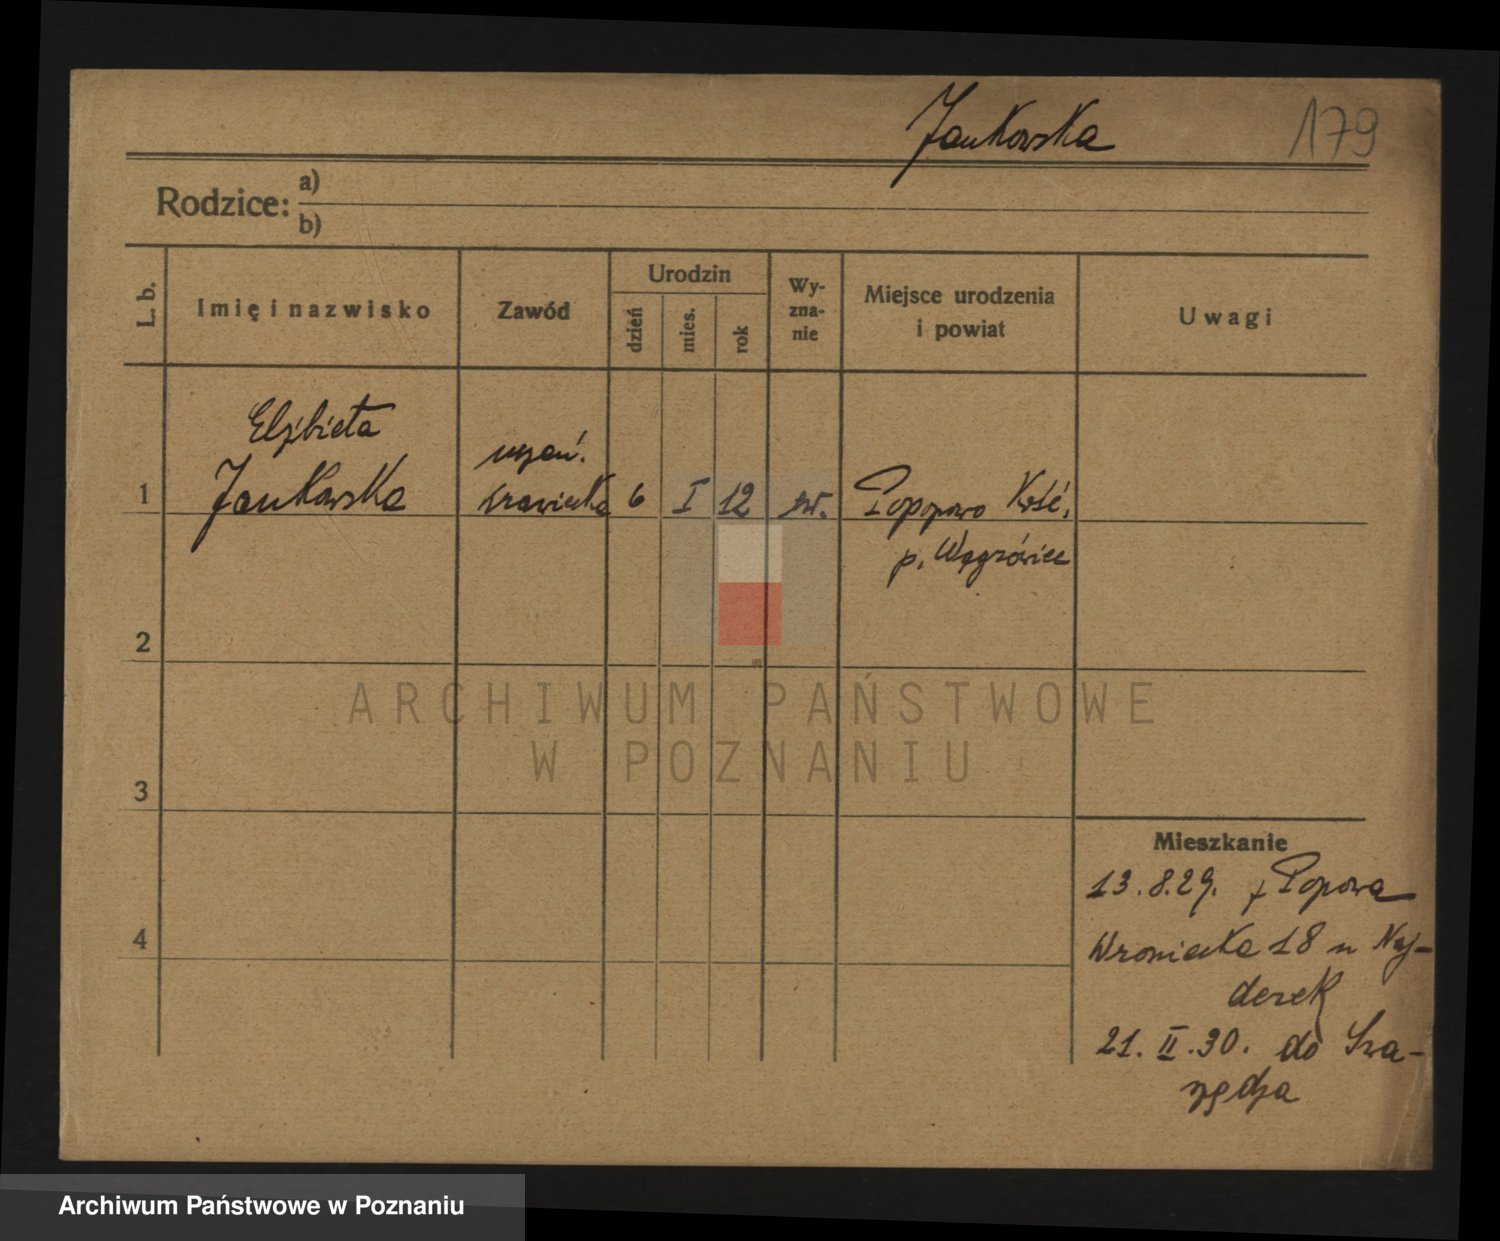 Jankowska 179
Rodzice: a)
b)
L. b. Imię i nazwisko Zawód Urodzin dzień mies. rok Wyznanie Miejsce urodzenia i powiat Uwagi
Elżbieta
Jankowska
uczeń.
1 krawiecka 6 I 12 Popowo Kość.
p. Wągrówiec
2
ARCHIWUM PAŃSTWOWE
W POZNANIU
3
Mieszkanie
13.8.29. z Popowa
4 Wroniecka 18 u Naj-
derek
21. II. 30. do
Archiwum Państwowe w Poznaniu